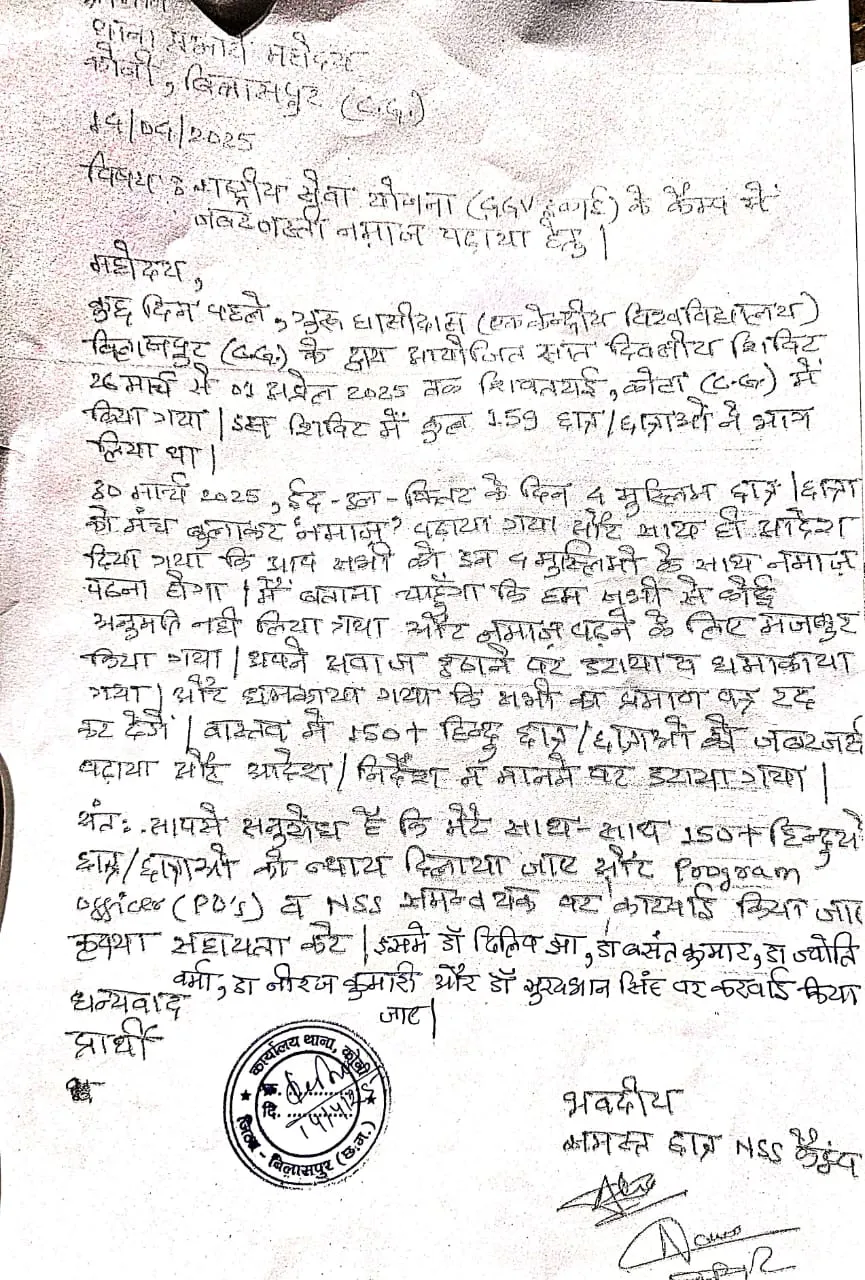 थाना प्रभारी महोदय
कोनी, बिलासपुर (C.G.)
14/04/2025
विषय : राष्ट्रीय सेवा योजना (GGV इकाई) के कैम्प में
जबरजस्ती नमाज पढ़ाया हेतु |
महोदय,
कुछ दिन पहले, गुरू घासीदास (एक केन्द्रीय विश्वविद्यालय)
बिलासपुर (C.G.) के द्वारा आयोजित सात दिवसीय शिविर
26 मार्च से 01 अप्रेल 2025 तक शिवतराई, कोटा (C.G.) में
किया गया | इस शिविर में कुल 159 छात्र/छात्राओं ने भाग
लिया था |
30 मार्च 2025, ईद-उल-फितर के दिन 4 मुस्लिम छात्र/छात्रा
को मंच बुलाकर नमाज़ पढ़ाया गया और साथ ही आदेश
दिया गया कि आप सभी को इन 4 मुस्लिमो के साथ नमाज़
पढ़ना होगा | मैं बताना चाहूँगा कि हम सभी से कोई
अनुमति नही लिया गया और नमाज़ पढ़ने के लिए मजबुर
किया गया | अपने आवाज उठाने पर डराया व धमाकाया
गया | और धमकाया गया कि सभी का प्रमाण पत्र रद्द
कर देगें | वास्तव में 150+ हिन्दु छात्र/छात्राओं को जबरजस्
पढ़ाया और आदेश/निर्देश न मानने पर डराया गया |
अंत: आपसे अनुरोध है कि मेरे साथ-साथ 150+ हिन्दुओ
छात्र/छात्राओं को न्याय दिलाया जाए और Program
Officer (PO's) व NSS समन्वयक पर कारवाई किया जाए
कृपया सहायता करे | इसमे डॉ दिलिप झा, डा बसंत कुमार, डा ज्योति
वर्मा, डा नीरज कुमारी और डॉ सुर्यभान सिंह पर करवाई किया
जाए|
धन्यवाद
प्रार्थी
कार्यालय थाना, कोनी
क्र.
दि.
14/4/25
जिला - बिलासपुर (छ.ग.)
भवदीय
समस्त छात्र NSS कैम्प